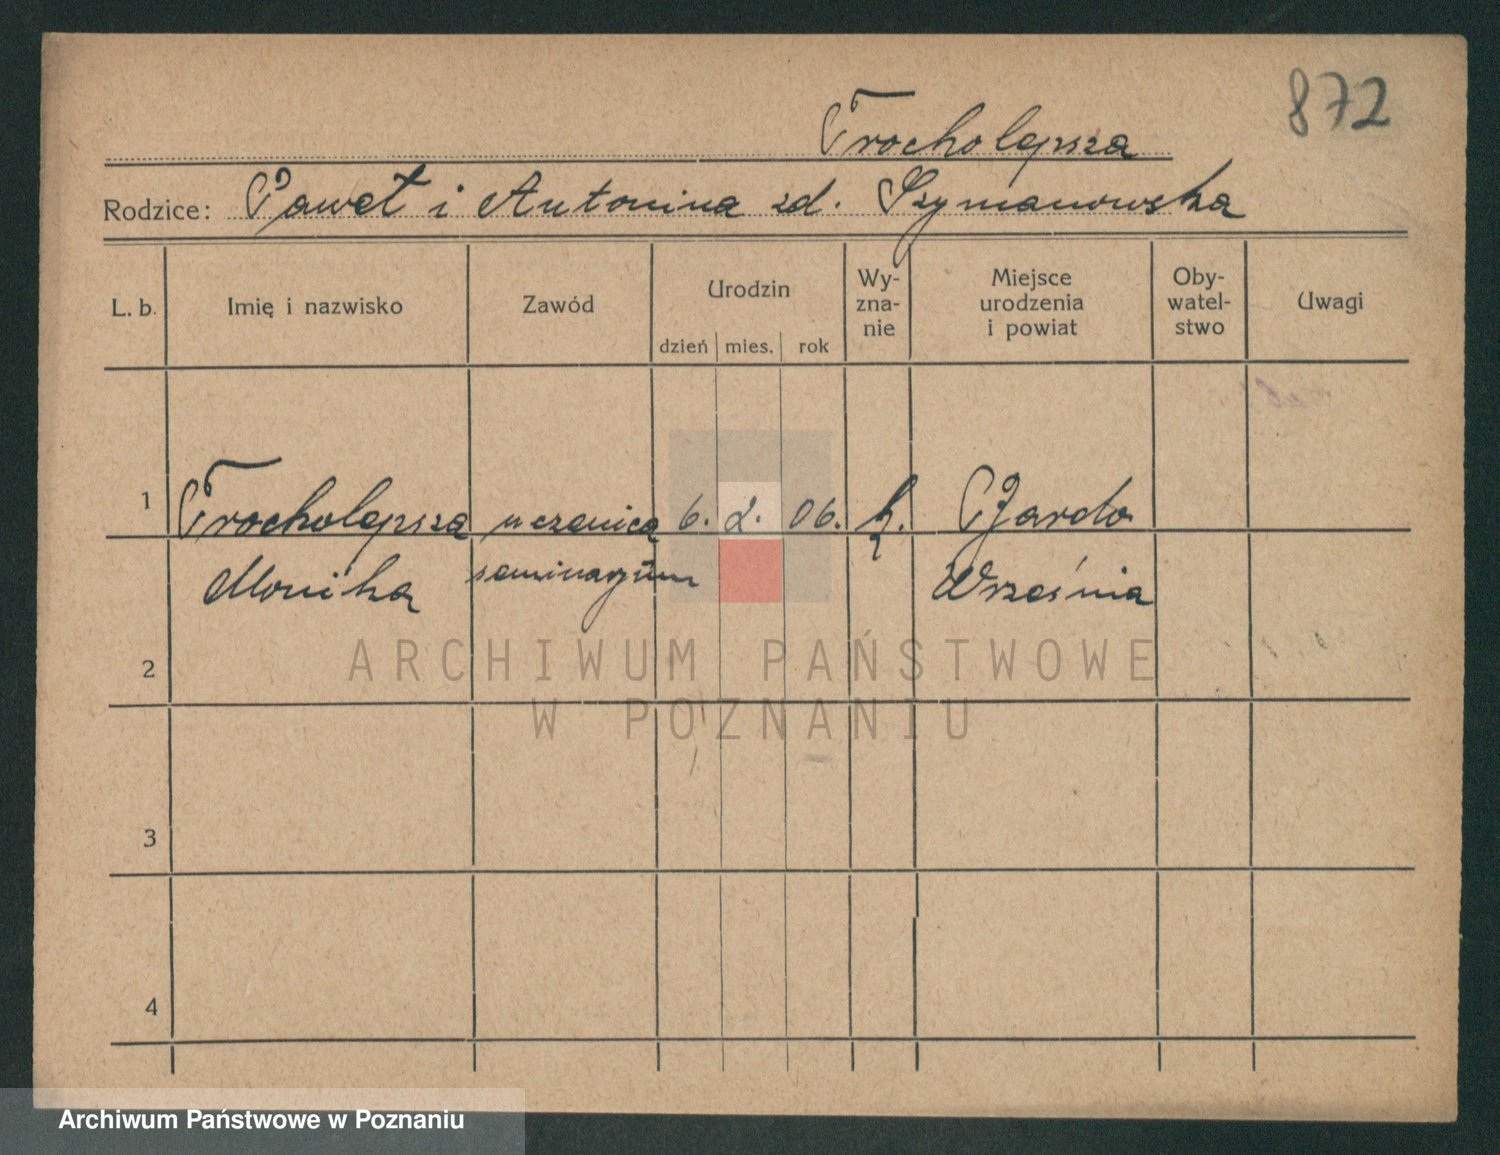 872
Trocholepsza
Rodzice: Paweł i Antonina zd. Szymanowska
L. b. Imię i nazwisko Zawód Urodzin dzień mies. rok Wy- zna- nie Miejsce urodzenia i powiat Oby- watel- stwo Uwagi
1 Trocholepsza uczenica 6. 2. 06. k.
Monika seminarjum Września
2
ARCHIWUM PAŃSTWOWE
W POZNANIU
3
4
Archiwum Państwowe w Poznaniu